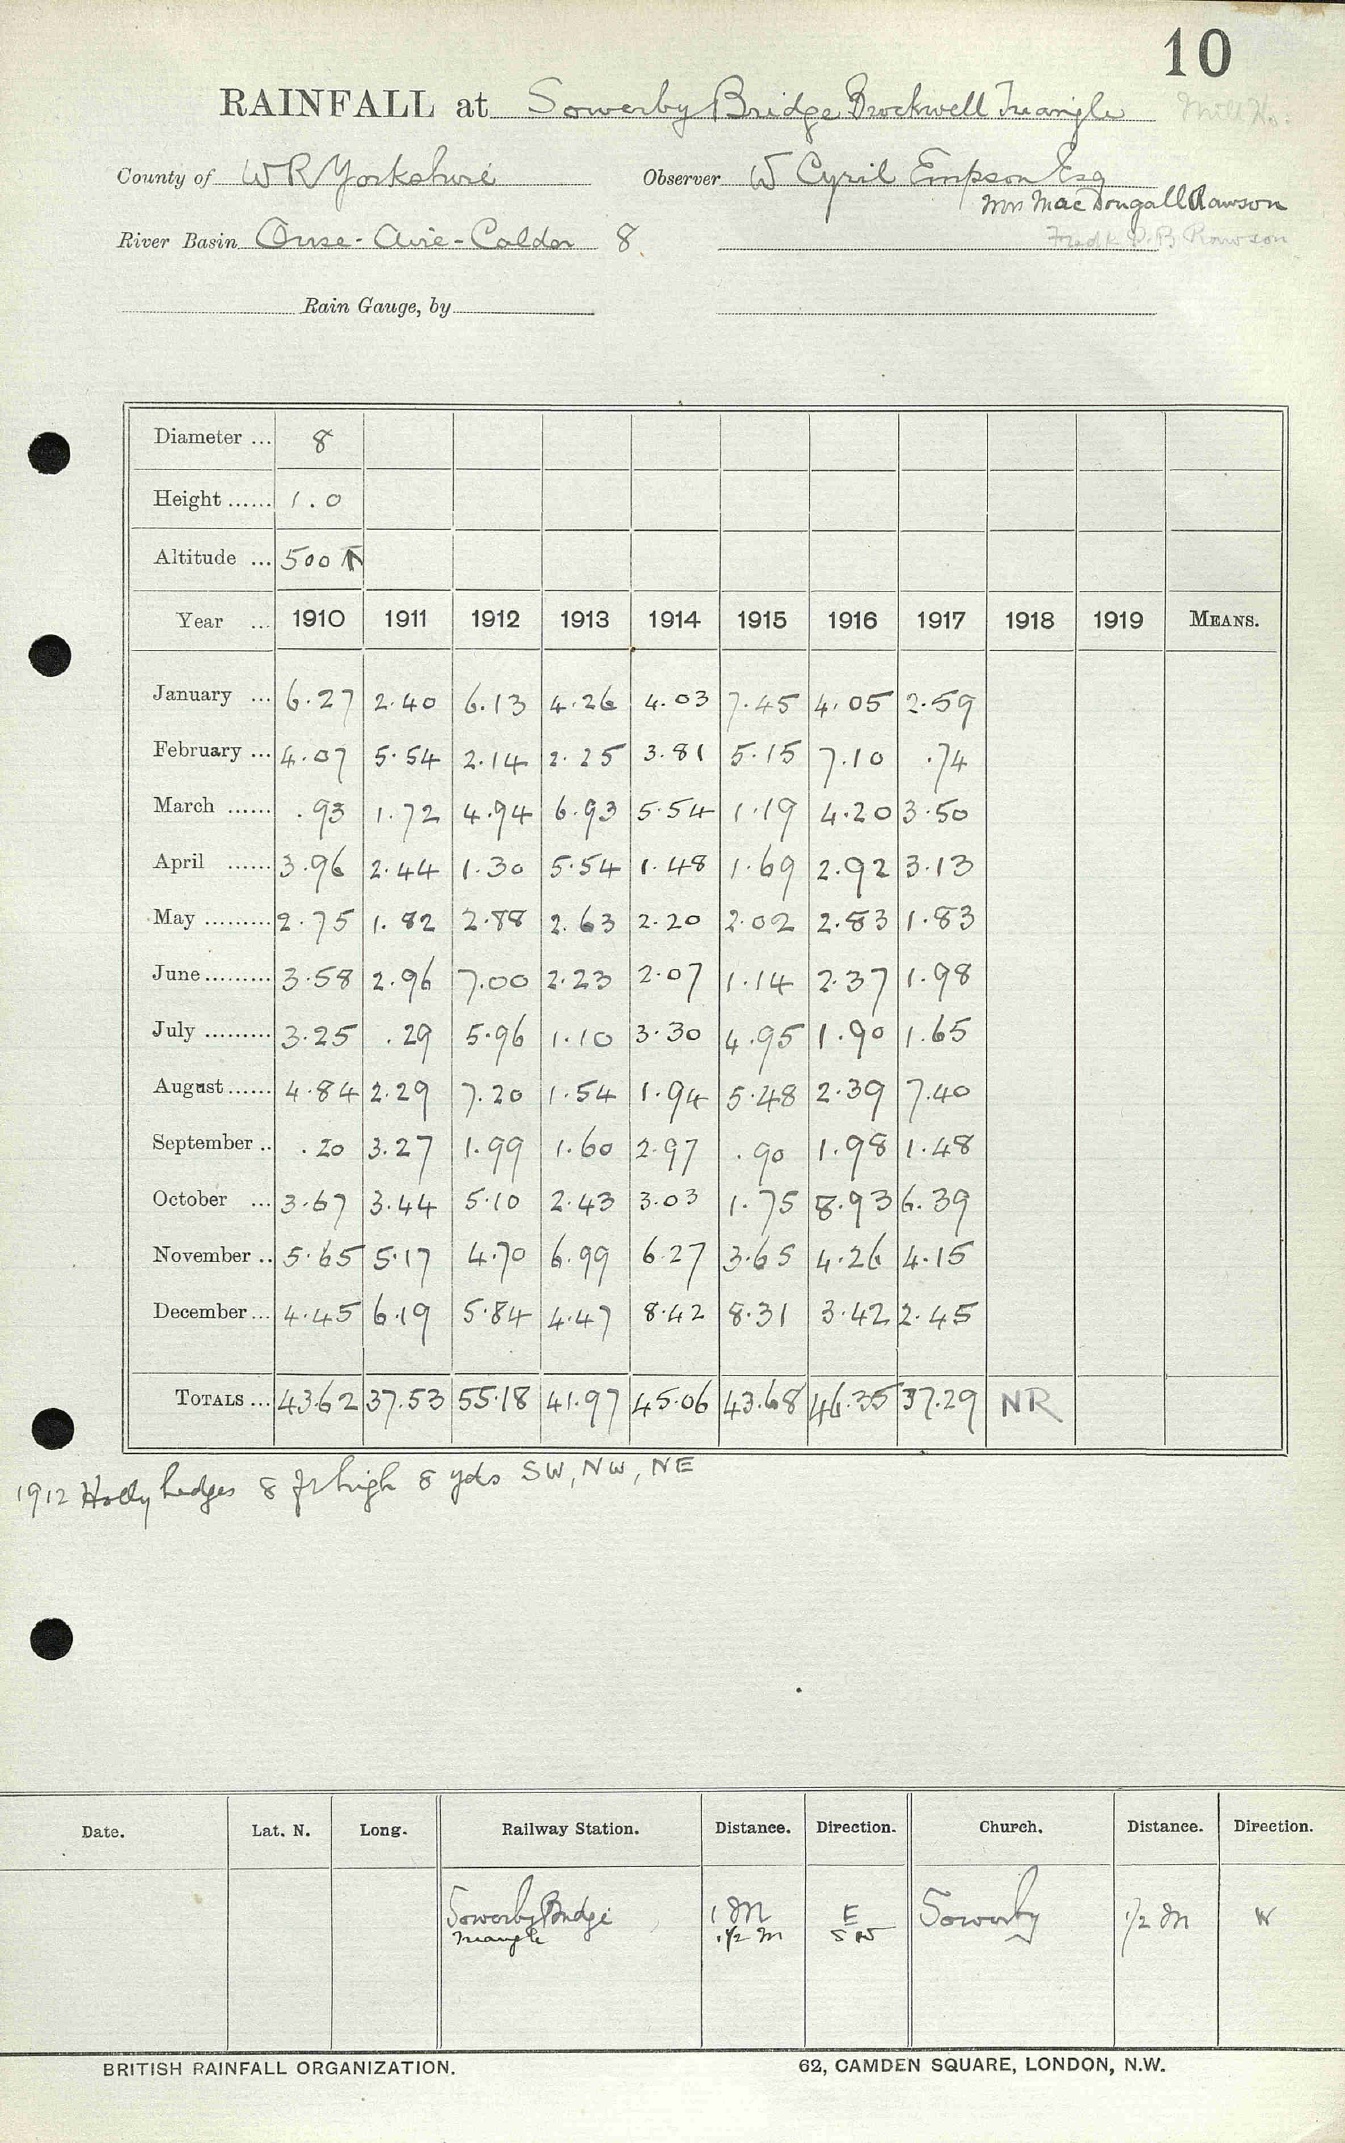 10
RAINFALL at Sowerby Bridge Brockwell Triangle Mill Ho:
County of W R Yorkshire Observer W Cyril Empson Esq
Mrs MacDougall Rawson
River Basin Ouse - Aire - Calder 8 Fredk P. B. Rawson
Rain Gauge, by
Diameter ... 8
Height ...... 1.0
Altitude ... 500 ↑
Year ... 1910 1911 1912 1913 1914 1915 1916 1917 1918 1919 MEANS.
January ... 6.27 2.40 6.13 4.26 4.03 7.45 4.05 2.59
February ... 4.07 5.54 2.14 2.25 3.81 5.15 7.10 .74
March ...... .93 1.72 4.94 6.93 5.54 1.19 4.20 3.50
April ...... 3.96 2.44 1.30 5.54 1.48 1.69 2.92 3.13
May ......... 2.75 1.82 2.88 2.63 2.20 2.02 2.83 1.83
June ......... 3.58 2.96 7.00 2.23 2.07 1.14 2.37 1.98
July ......... 3.25 .29 5.96 1.10 3.30 4.95 1.90 1.65
August ...... 4.84 2.29 7.20 1.54 1.94 5.48 2.39 7.40
September .. .20 3.27 1.99 1.60 2.97 .90 1.98 1.48
October ... 3.67 3.44 5.10 2.43 3.03 1.75 8.93 6.39
November .. 5.65 5.17 4.70 6.99 6.27 3.65 4.26 4.15
December ... 4.45 6.19 5.84 4.47 8.42 8.31 3.42 2.45
TOTALS ... 43.62 37.53 55.18 41.97 45.06 43.68 46.35 37.29 NR
1912 Holly hedges 8 ft high 8 yds SW, NW, NE
Date. Lat. N. Long. Railway Station. Distance. Direction. Church. Distance. Direction.
Sowerby Bridge 1 M E Sowerby 1/2 M W
Triangle 1/2 M SW
BRITISH RAINFALL ORGANIZATION. 62, CAMDEN SQUARE, LONDON, N.W.